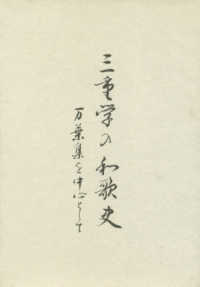 三重学の和歌史
万葉集を中心として